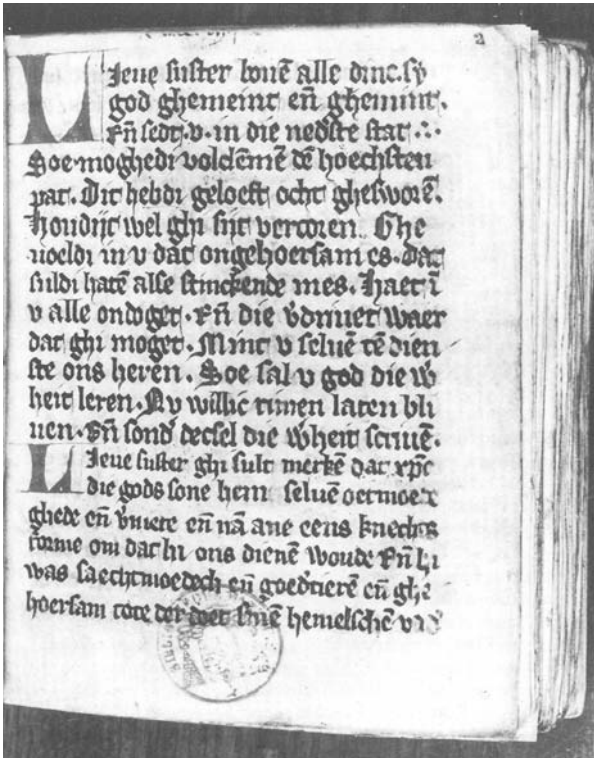 2
Lieue suster bouē alle dinc. sy
god ghemeint eñ ghemint.
Eñ sedt. v. in die nedste stat ∴
Soe moghedi volcōmē tē hoechsten
pat. Dit hebdi geloeft ocht ghesworē.
houdijt wel ghi sijt vercoren. Ghe
uoeldi in v dat ongehoersam es. dat
suldi hatē alse stinckende mes. Haet ī
v alle ondoget. Eñ die v̄driuet waer
dat ghi moget. Mint v seluē tē dien
ste ons heren. Soe sal v god die w̄
heit leren. Nv willic rimen laten bli
uen. Eñ sond' decsel die w̄heit scriuē.
Lieue suster ghi sult merkē dat xp̄c
die gods sone hem seluē oetmoe
ghede eñ v̄niete eñ nā ane eens knechts
forme om dat hi ons dienē woude Eñ hi
was saechtmoedech eñ goedtierē eñ ghe
hoersam tote der doet sinē hemelschē